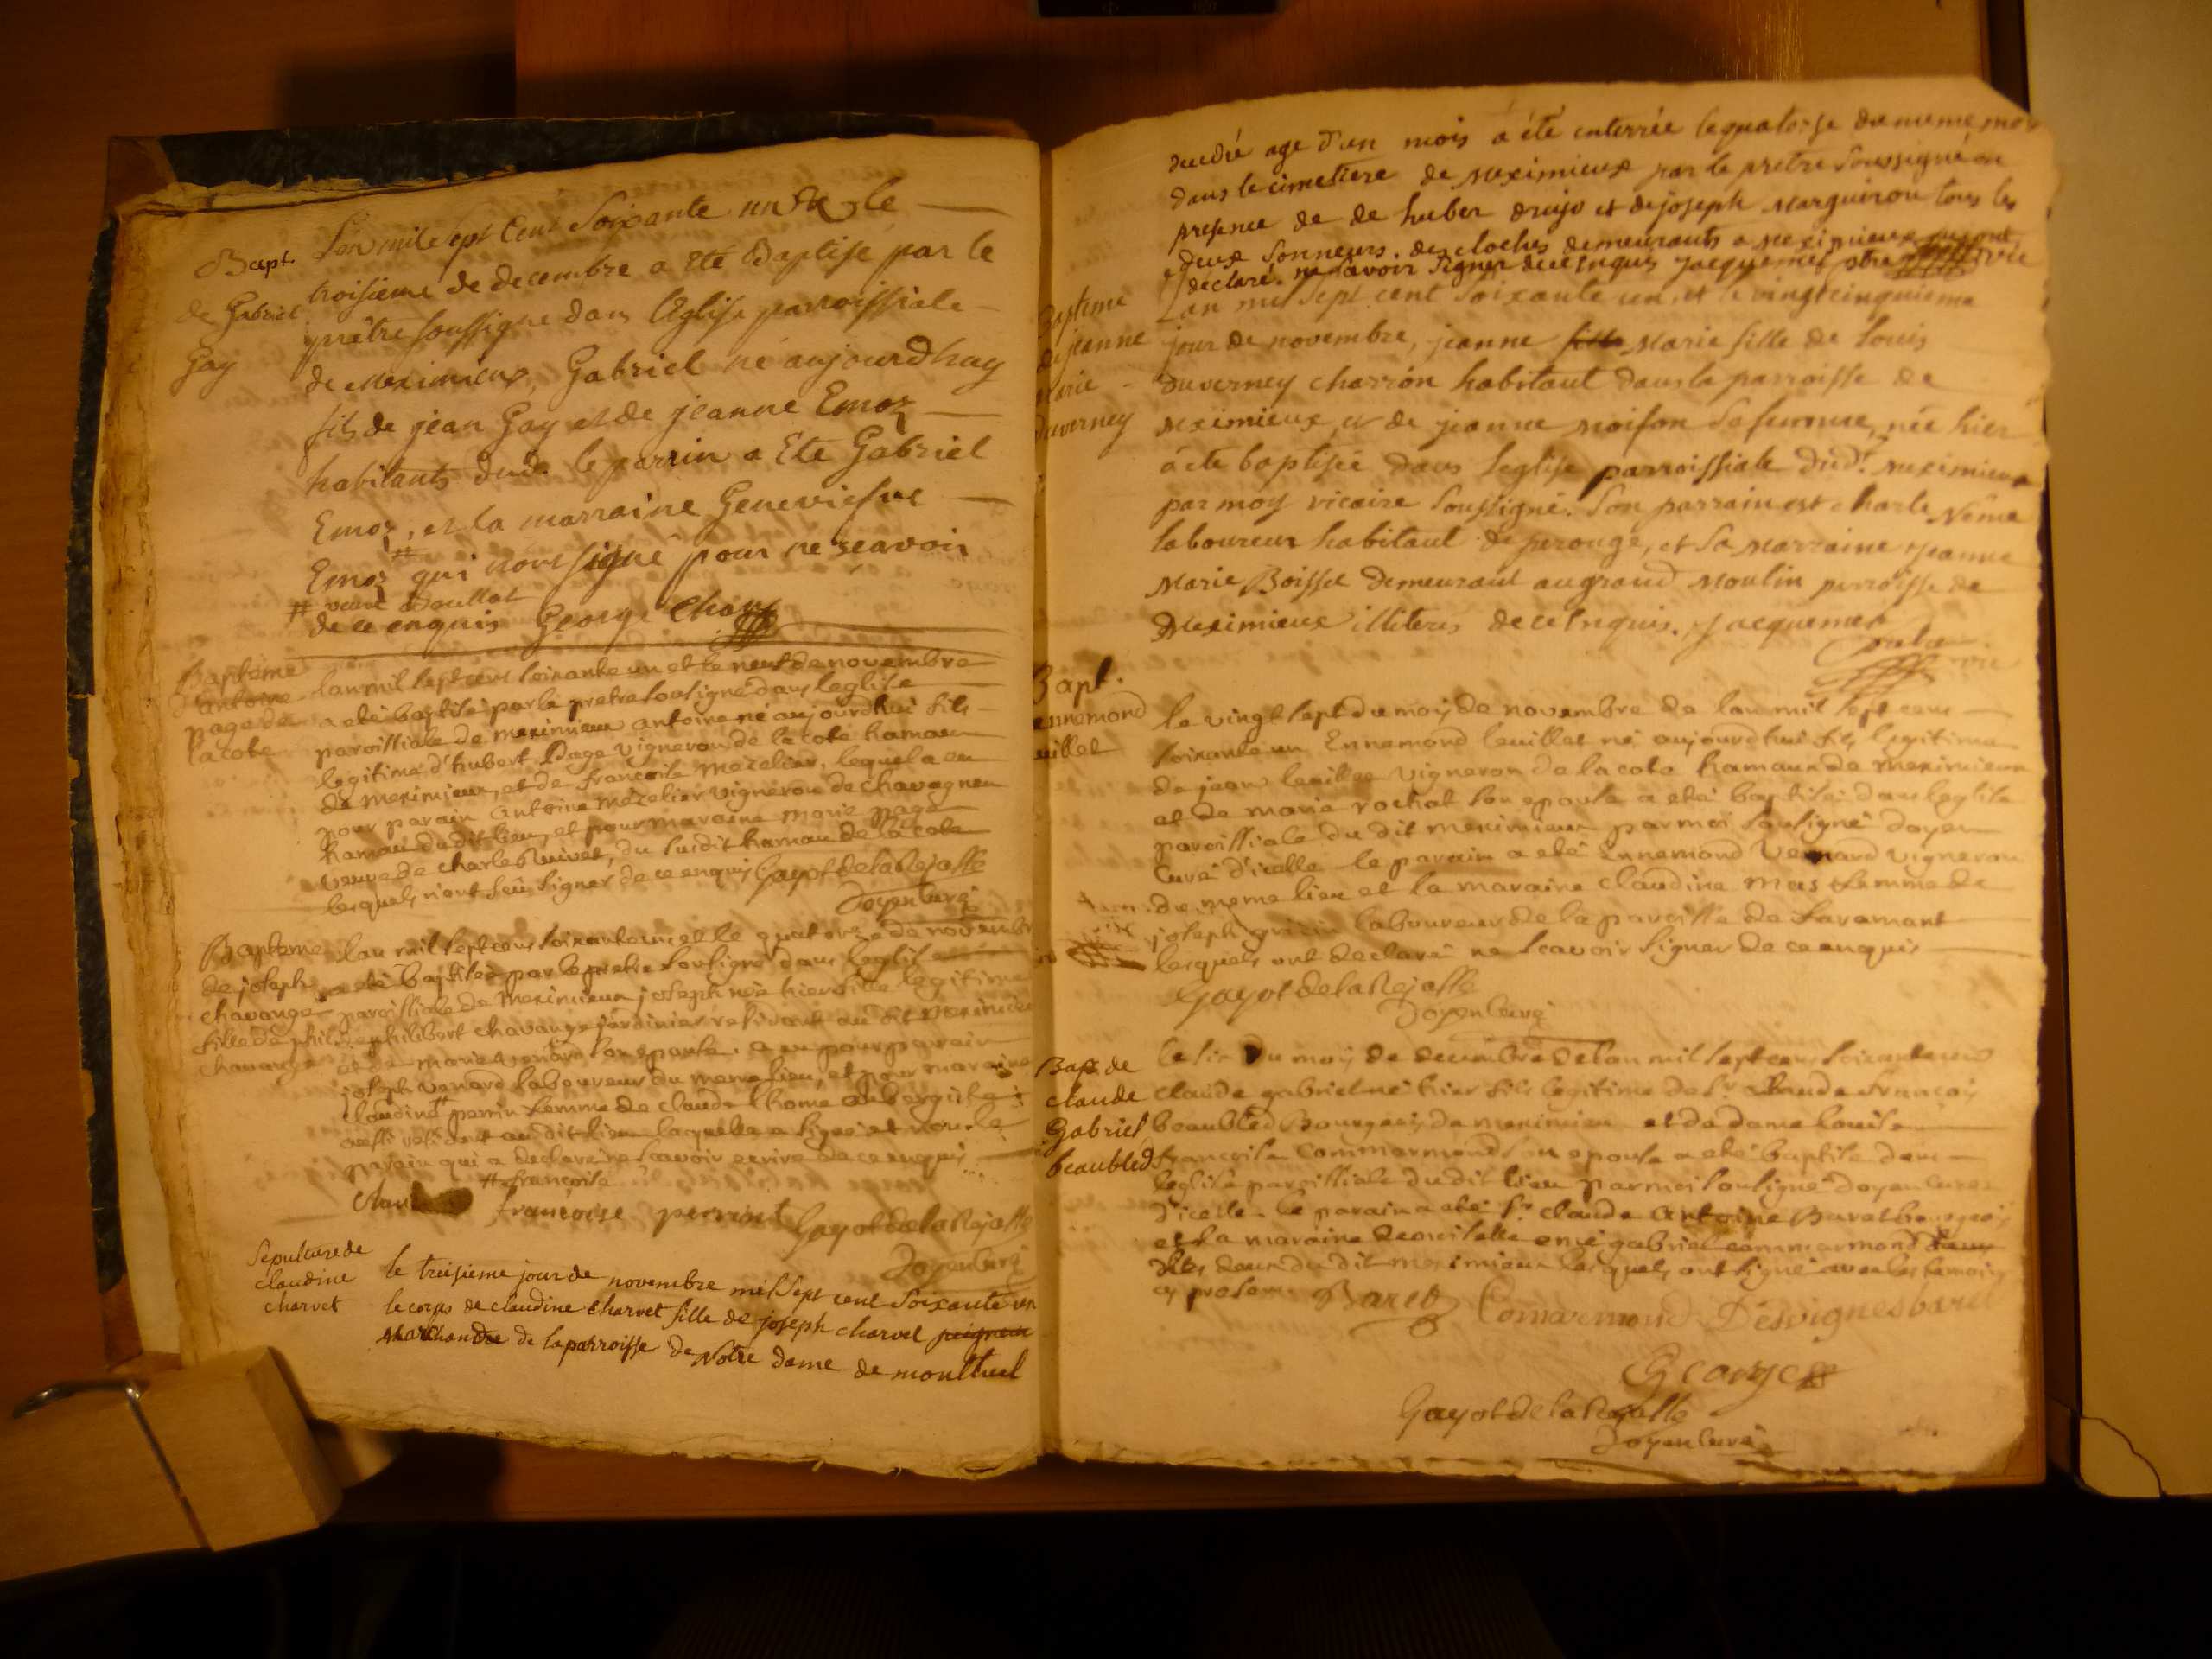 Bapt.
de Gabriel
Gay
L'an mil sept cent soixante un et le
troisieme de decembre a eté Baptisé par le
prêtre soussigné dans l'Eglise parroissiale
de Meximieux, Gabriel né aujourdhuy
fils de jean Gay et de jeanne Emoz
habitants dud. le parrin a Eté Gabriel
Emoz, et la marraine Geneviesve
Emoz # qui n'ont signé pour ne sçavoir
# veuve Doullat
de ce enquis George
Bapteme
d'antoine
page de
la cote
lan mil sept cens soixante un et le neuf de novembre
a eté baptisé par le pretre sousigné dans leglise
paroissiale de meximieux antoine né aujourdhui fils
legitime d'hubert Page vigneron de la cote hamau
de meximieux, et de françoise mezelier, lequel a eu
pour parain antoine mezelier vigneron de chavagneu
hamau du dit lieu, et pour maraine marie page
veuve de charle Ruivet, du susdit hamau de la cote
lesquels n'ont seû signer de ce enquis Gayot de la Rejasse
Doyen Curé
Bapteme
de joseph
chavange
fille de phil.
chavange
lan mil sept cens soixante un et le quatorze de novembre
a eté baptisée par le pretre sousigné dans leglise
paroissiale de meximieux joseph née hier fille legitime
de philibert chavange jardinier residant au dit meximieux
et de marie venard son epouse, a eu pour parain
joseph venard laboureur du meme lieu, et pour maraine
Claudine # perrin femme de claude thome aubergiste
aussi residant au dit lieu laquelle a signé et non le
parain qui a declaré ne scavoir ecrire de ce enquis
# françoise
françoise perrin Gayot de la Rejasse
Doyen Curé
Sepulture de
claudine
charvet
le treisieme jour de novembre mil sept cent soixante un
le corps de claudine charvet fille de joseph charvet
marchand de la parroisse de Notre dame de montluel
decedé age d'un mois a été enterrée le quatorse du meme mois
dans le cimetiere de meximieux par le pretre soussigné en
presence de de huber drujo et de joseph Marguirou tous les
deux sonneurs des cloches demeurants a meximieux qui ont
declaré ne savoir signer de ce enquis jacquemet ptre vic
Bapteme
de jeanne
marie
duverney
L'an mil sept cent soixante un, et le vingt cinquieme
jour de novembre, jeanne fille Marie fille de louis
duverney charron habitant dans la parroisse de
meximieux, et de jeanne moison sa femme, née hier
a été baptisée dans leglise parroissiale dud.t meximieux
par moy vicaire soussigné. son parrain est charle Nême
laboureur habitant de perouge, et sa marraine jeanne
marie Boisset demeurant au grand moulin parroisse de
Meximieux illiteres de ce enquis. jacquemet
pretre
vic
Bapt.
ennemond
euillet
le vingt sept du mois de novembre de lan mil sept cens
soixante un Ennemond leuillet né aujourdhui fils legitime
de jean leuillet vigneron de la cote hamau de meximieux
et de marie rochat son epouse a eté baptisé dans leglise
paroissiale du dit meximieux par moi sousigné doyen
Curé d'icelle le parain a eté Ennemond Venard vigneron
du meme lieu et la maraine claudine mas femme de
joseph laboureur de la paroisse de faramant
lesquels ont declaré ne scavoir signer de ce enquis
Gayot de la Rejasse
Doyen Curé
Bap. de
claude
Gabriel
beaubled
le six du mois de decembre de lan mil sept cens soixante un
claude gabriel né hier fils legitime de sr. claude françois
beaubled Bourgeois de meximieux et de dame louise
françoise Commarmond son epouse a eté baptisé dans
leglise paroissiale du dit lieu par moi sousigné doyen curé
d'icelle. le parain a eté sr. claude antoine Baret bourgeois
et la maraine demoiselle gabriel commarmond
deux du dit meximieux lesquels ont signé avec les temoins
cy presens Baret Comarmond Desvignes baret
George
Gayot de la Rejasse
Doyen Curé